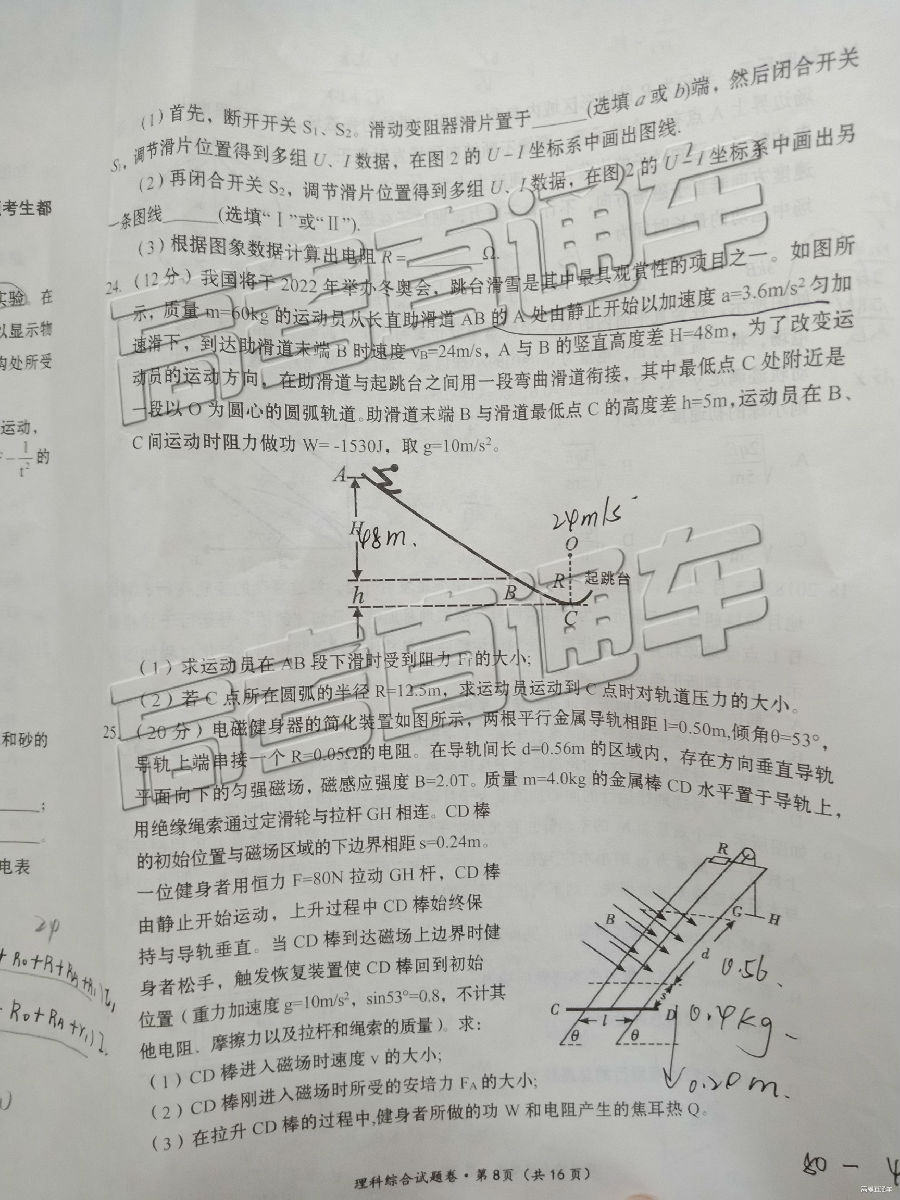 (1)首先，断开开关 S₁、S₂。滑动变阻器滑片置于______(选填 a 或 b)端，然后闭合开关
S₁，调节滑片位置得到多组 U、I 数据，在图 2 的 U－I 坐标系中画出图线.
(2)再闭合开关 S₂，调节滑片位置得到多组 U、I 数据，在图 2 的 U－I 坐标系中画出另
一条图线______(选填“Ⅰ”或“Ⅱ”).
(3)根据图象数据计算出电阻 R =________Ω.
24.（12分）我国将于 2022 年举办冬奥会，跳台滑雪是其中最具观赏性的项目之一。如图所
示，质量 m=60kg 的运动员从长直助滑道 AB 的 A 处由静止开始以加速度 a=3.6m/s² 匀加
速滑下，到达助滑道末端 B 时速度 vB=24m/s，A 与 B 的竖直高度差 H=48m，为了改变运
动员的运动方向，在助滑道与起跳台之间用一段弯曲滑道衔接，其中最低点 C 处附近是
一段以 O 为圆心的圆弧轨道。助滑道末端 B 与滑道最低点 C 的高度差 h=5m，运动员在 B、
C 间运动时阻力做功 W= -1530J，取 g=10m/s²。
A
H
48m.
24m/s
O
R
起跳台
h
B
C
（1）求运动员在 AB 段下滑时受到阻力 Ff 的大小;
（2）若 C 点所在圆弧的半径 R=12.5m，求运动员运动到 C 点时对轨道压力的大小。
25.（20分）电磁健身器的简化装置如图所示，两根平行金属导轨相距 l=0.50m,倾角θ=53°，
导轨上端串接一个 R=0.05Ω的电阻。在导轨间长 d=0.56m 的区域内，存在方向垂直导轨
平面向下的匀强磁场，磁感应强度 B=2.0T。质量 m=4.0kg 的金属棒 CD 水平置于导轨上，
用绝缘绳索通过定滑轮与拉杆 GH 相连。CD 棒
的初始位置与磁场区域的下边界相距 s=0.24m。
一位健身者用恒力 F=80N 拉动 GH 杆，CD 棒
由静止开始运动，上升过程中 CD 棒始终保
持与导轨垂直。当 CD 棒到达磁场上边界时健
身者松手，触发恢复装置使 CD 棒回到初始
位置（重力加速度 g=10m/s²，sin53°=0.8，不计其
他电阻、摩擦力以及拉杆和绳索的质量）。求：
（1）CD 棒进入磁场时速度 v 的大小;
（2）CD 棒刚进入磁场时所受的安培力 FA 的大小;
（3）在拉升 CD 棒的过程中,健身者所做的功 W 和电阻产生的焦耳热 Q。
R
B
G
H
d
0.56
s
C
l
D
0.4kg
θ
θ
0.20m.
理科综合试题卷·第8页（共16页）
80 - 4
考生都
实验。在
以显示物
沟处所受
运动，
- 1/t² 的
和砂的
;
。
电表
24
+ R₀ + R + RA + r₁)I₁
R₀ + RA + r₁)I.
高考直通车
高考直通车